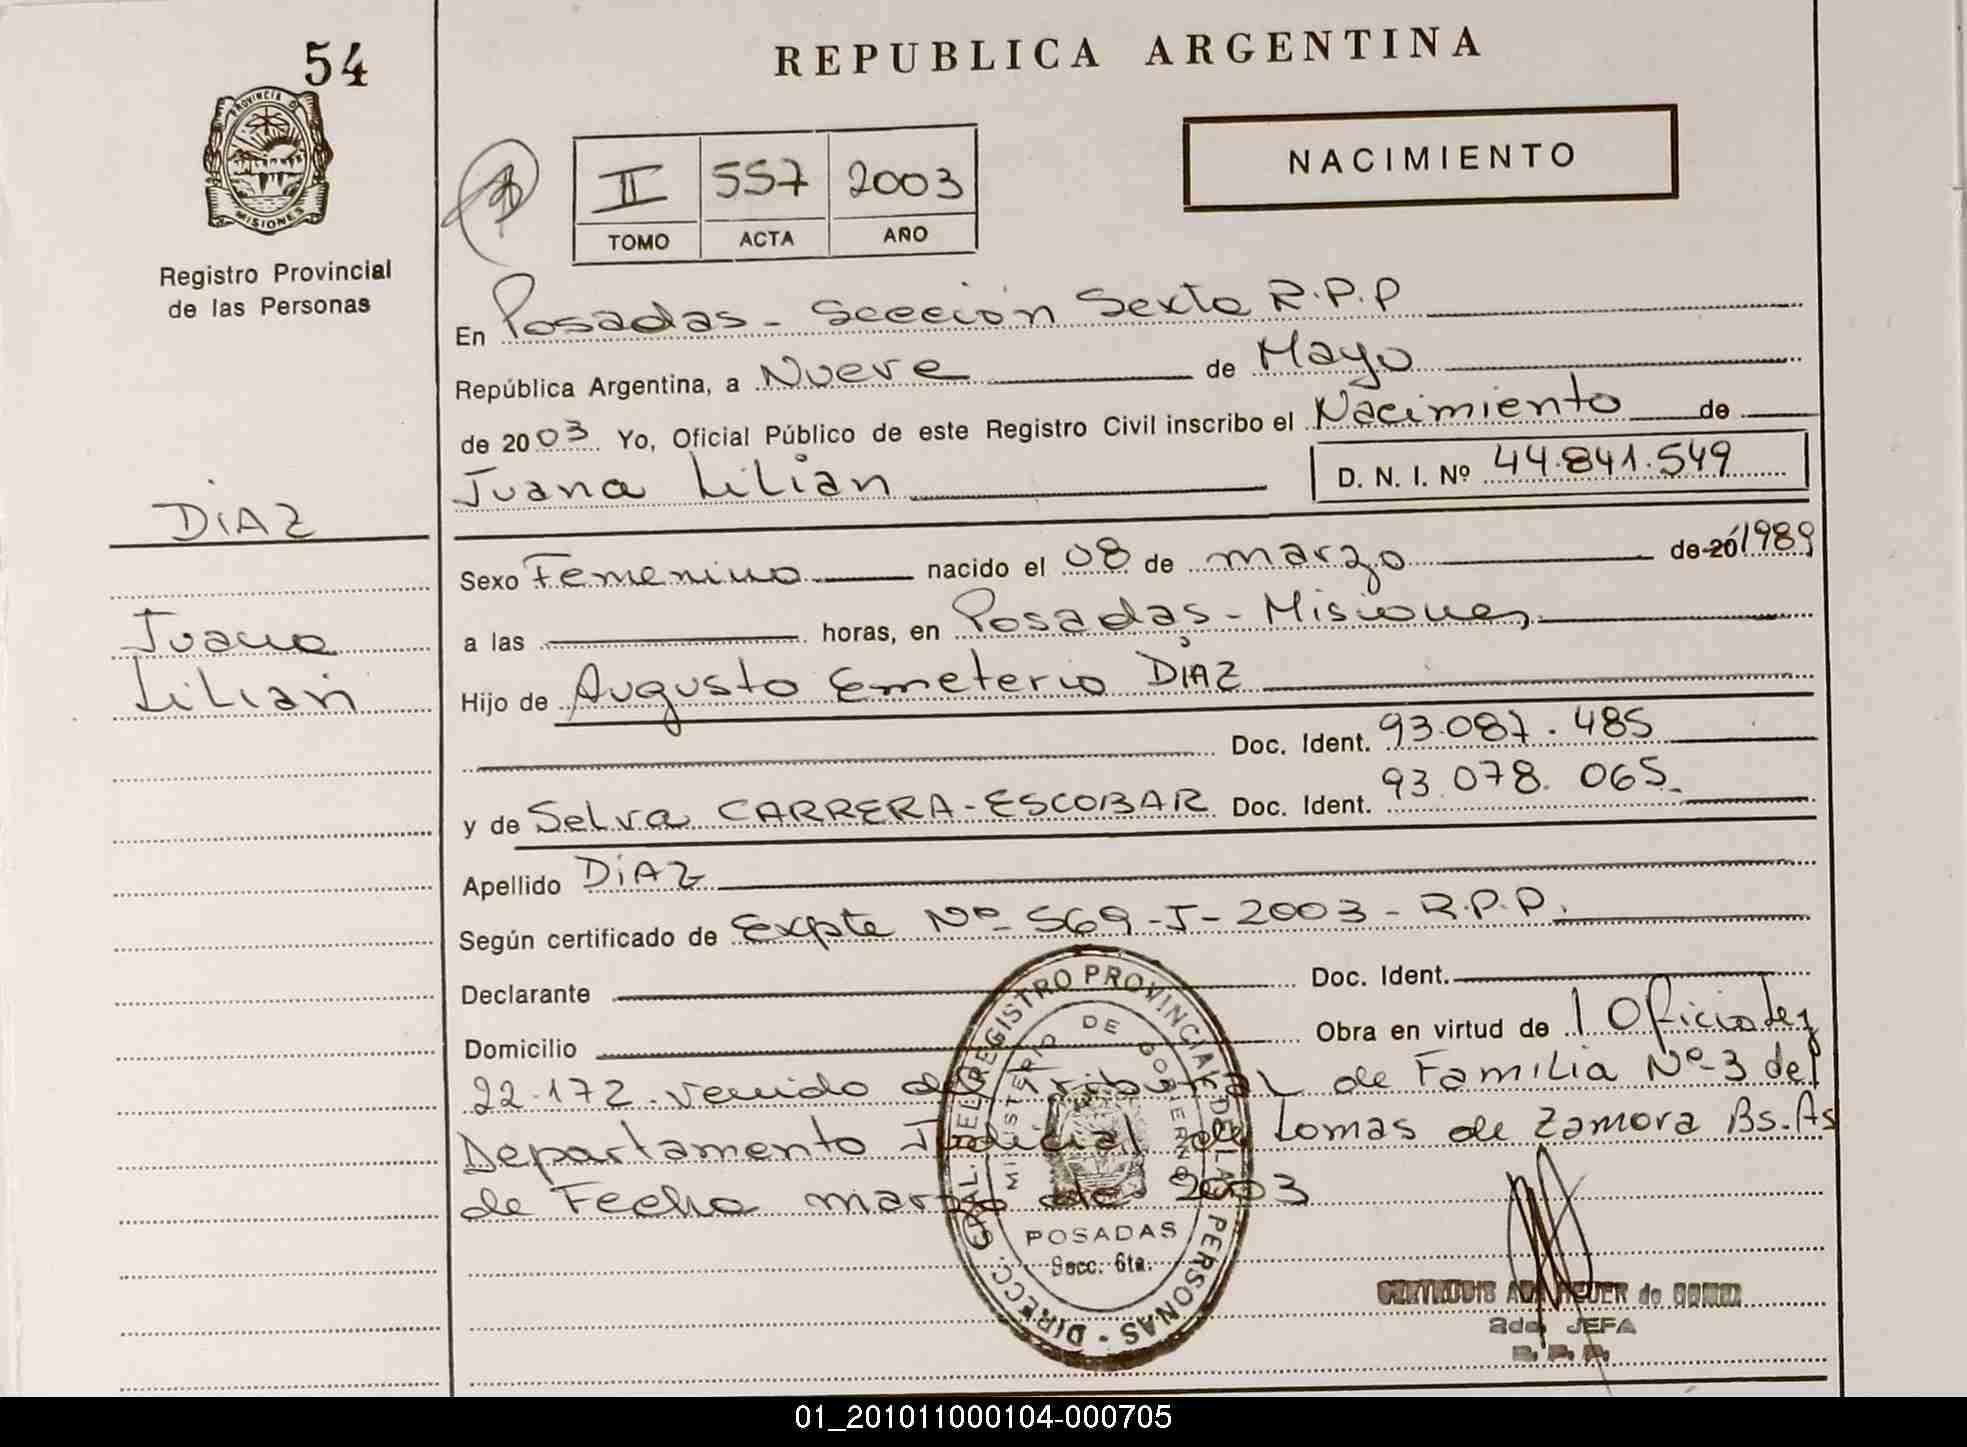 54
REPUBLICA ARGENTINA
PROVINCIA D
MISIONES
Registro Provincial
de las Personas
NACIMIENTO
II 557 2003
TOMO ACTA AÑO
En Posadas - Sección Sexta R.P.P
República Argentina, a Nueve de Mayo
de 2003. Yo, Oficial Público de este Registro Civil inscribo el Nacimiento de
Juana Lilian D. N. I. Nº 44.841.549
DiAZ
Juana
Lilian
Sexo Femenino nacido el 08 de marzo de 20 1989
a las horas, en Posadas - Misiones
Hijo de Augusto Emeterio DiAZ
Doc. Ident. 93.087.485
y de Selva CARRERA-ESCOBAR Doc. Ident. 93.078.065.
Apellido DiAZ
Según certificado de Expte Nº 569-J-2003-R.P.P.
Declarante Doc. Ident.
Domicilio Obra en virtud de Oficio Ley
22.172. venido del Tribunal de Familia Nº-3 del
Departamento Judicial de Lomas de Zamora Bs.As
de Fecha marzo de 2003
DIRECC. GRAL. DEL REGISTRO PROVINCIAL DE LAS PERSONAS
MINISTERIO DE GOBIERNO
POSADAS
Secc. 6ta.
GERTRUDIS de GOMEZ
2da JEFA
R. P. P.
01_201011000104-000705